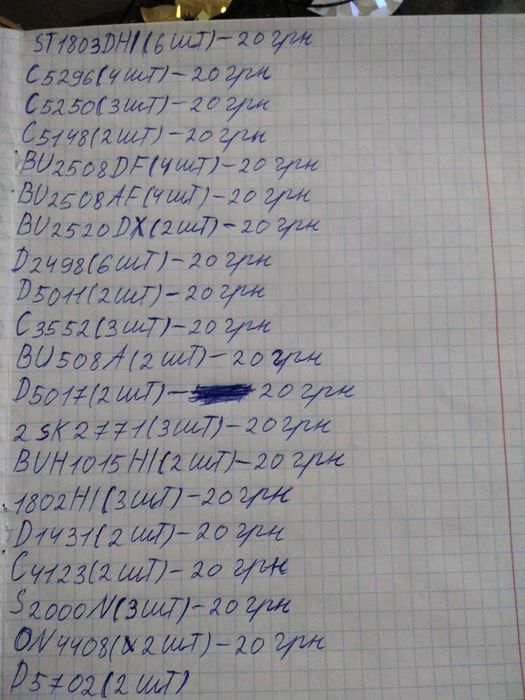 ST1803DHI(6шт)-20грн
C5296(4шт)-20грн
C5250(3шт)-20грн
C5148(2шт)-20грн
BU2508DF(4шт)-20грн
BU2508AF(4шт)-20грн
BU2520DX(2шт)-20грн
D2498(6шт)-20грн
D5011(2шт)-20грн
C3552(3шт)-20грн
BU508A(2шт)-20грн
D5017(2шт)-20грн
2SK2771(3шт)-20грн
BUH1015HI(2шт)-20грн
1802HI(3шт)-20грн
D1431(2шт)-20грн
C4123(2шт)-20грн
S2000N(3шт)-20грн
ON4408(2шт)-20грн
D5702(2шт)